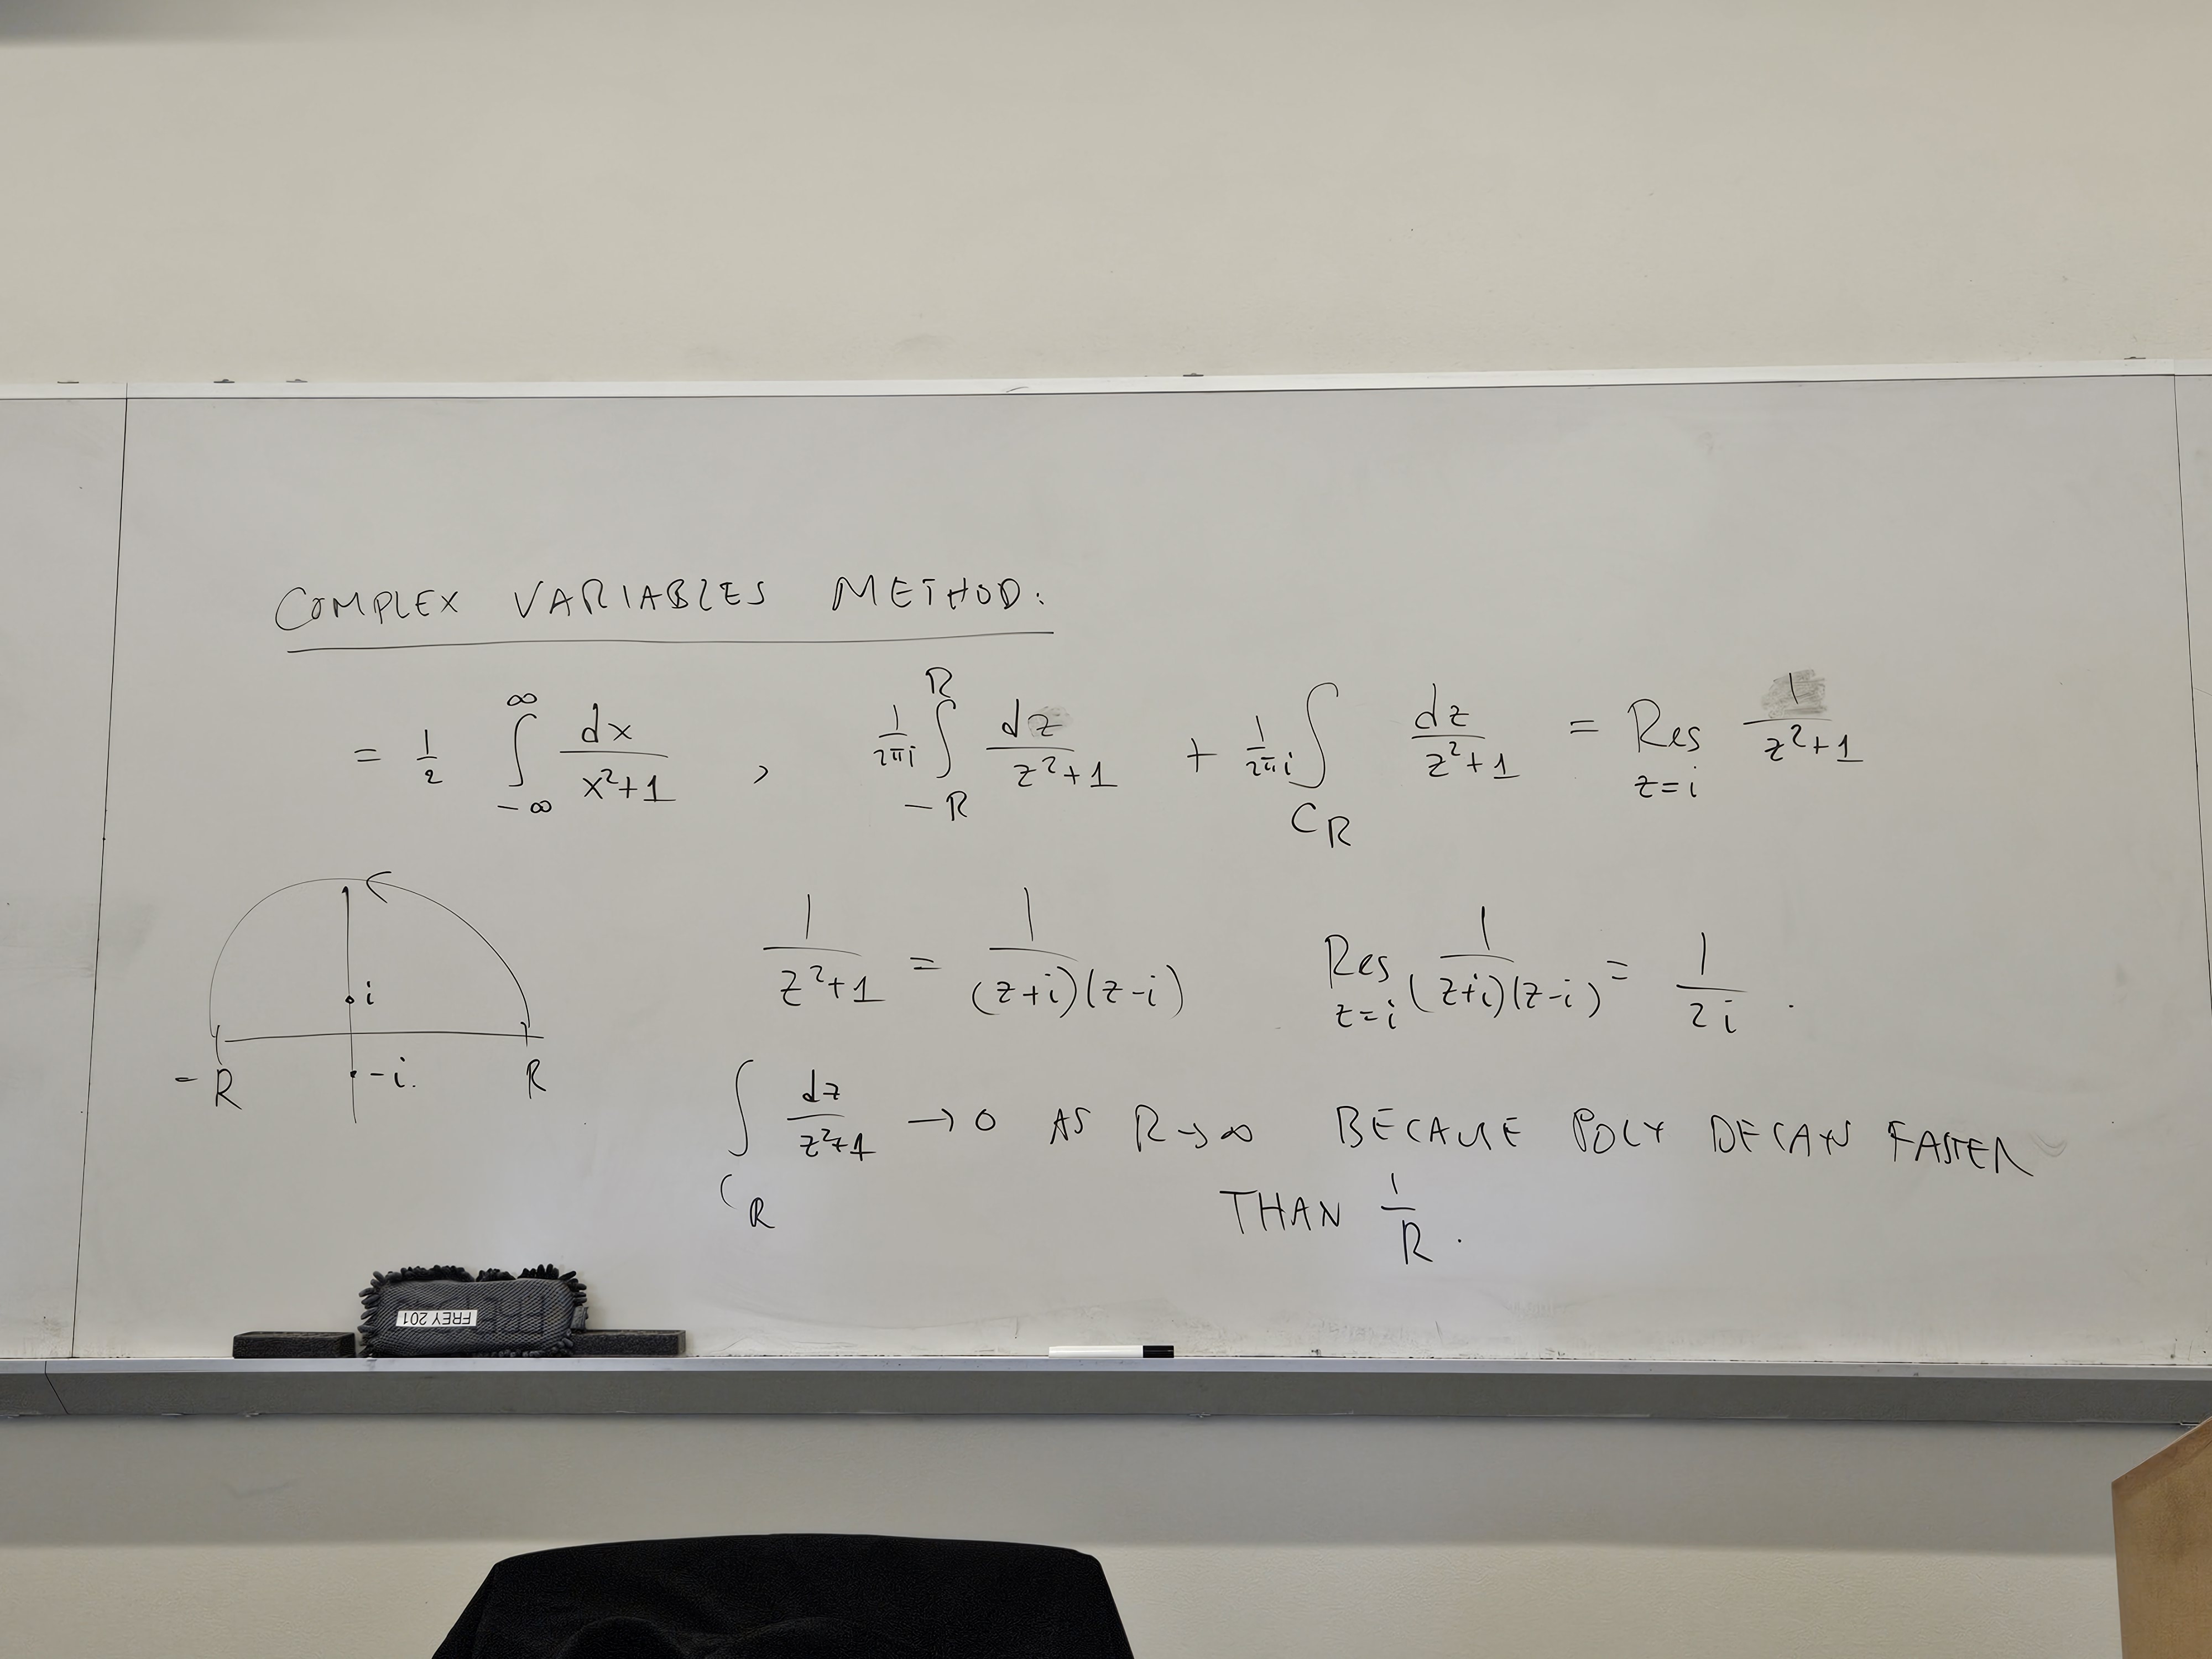 COMPLEX VARIABLES METHOD:
= 1/2 ∫_{-∞}^{∞} dx/(x²+1) , 1/(2πi) ∫_{-R}^{R} dz/(z²+1) + 1/(2πi) ∫_{C_R} dz/(z²+1) = Res_{z=i} 1/(z²+1)
i
-i.
-R R
1/(z²+1) = 1/((z+i)(z-i)) Res_{z=i} 1/((z+i)(z-i)) = 1/(2i) .
∫_{C_R} dz/(z²+1) → 0 AS R→∞ BECAUSE POLY DECAYS FASTER
THAN 1/R .
FREY 201